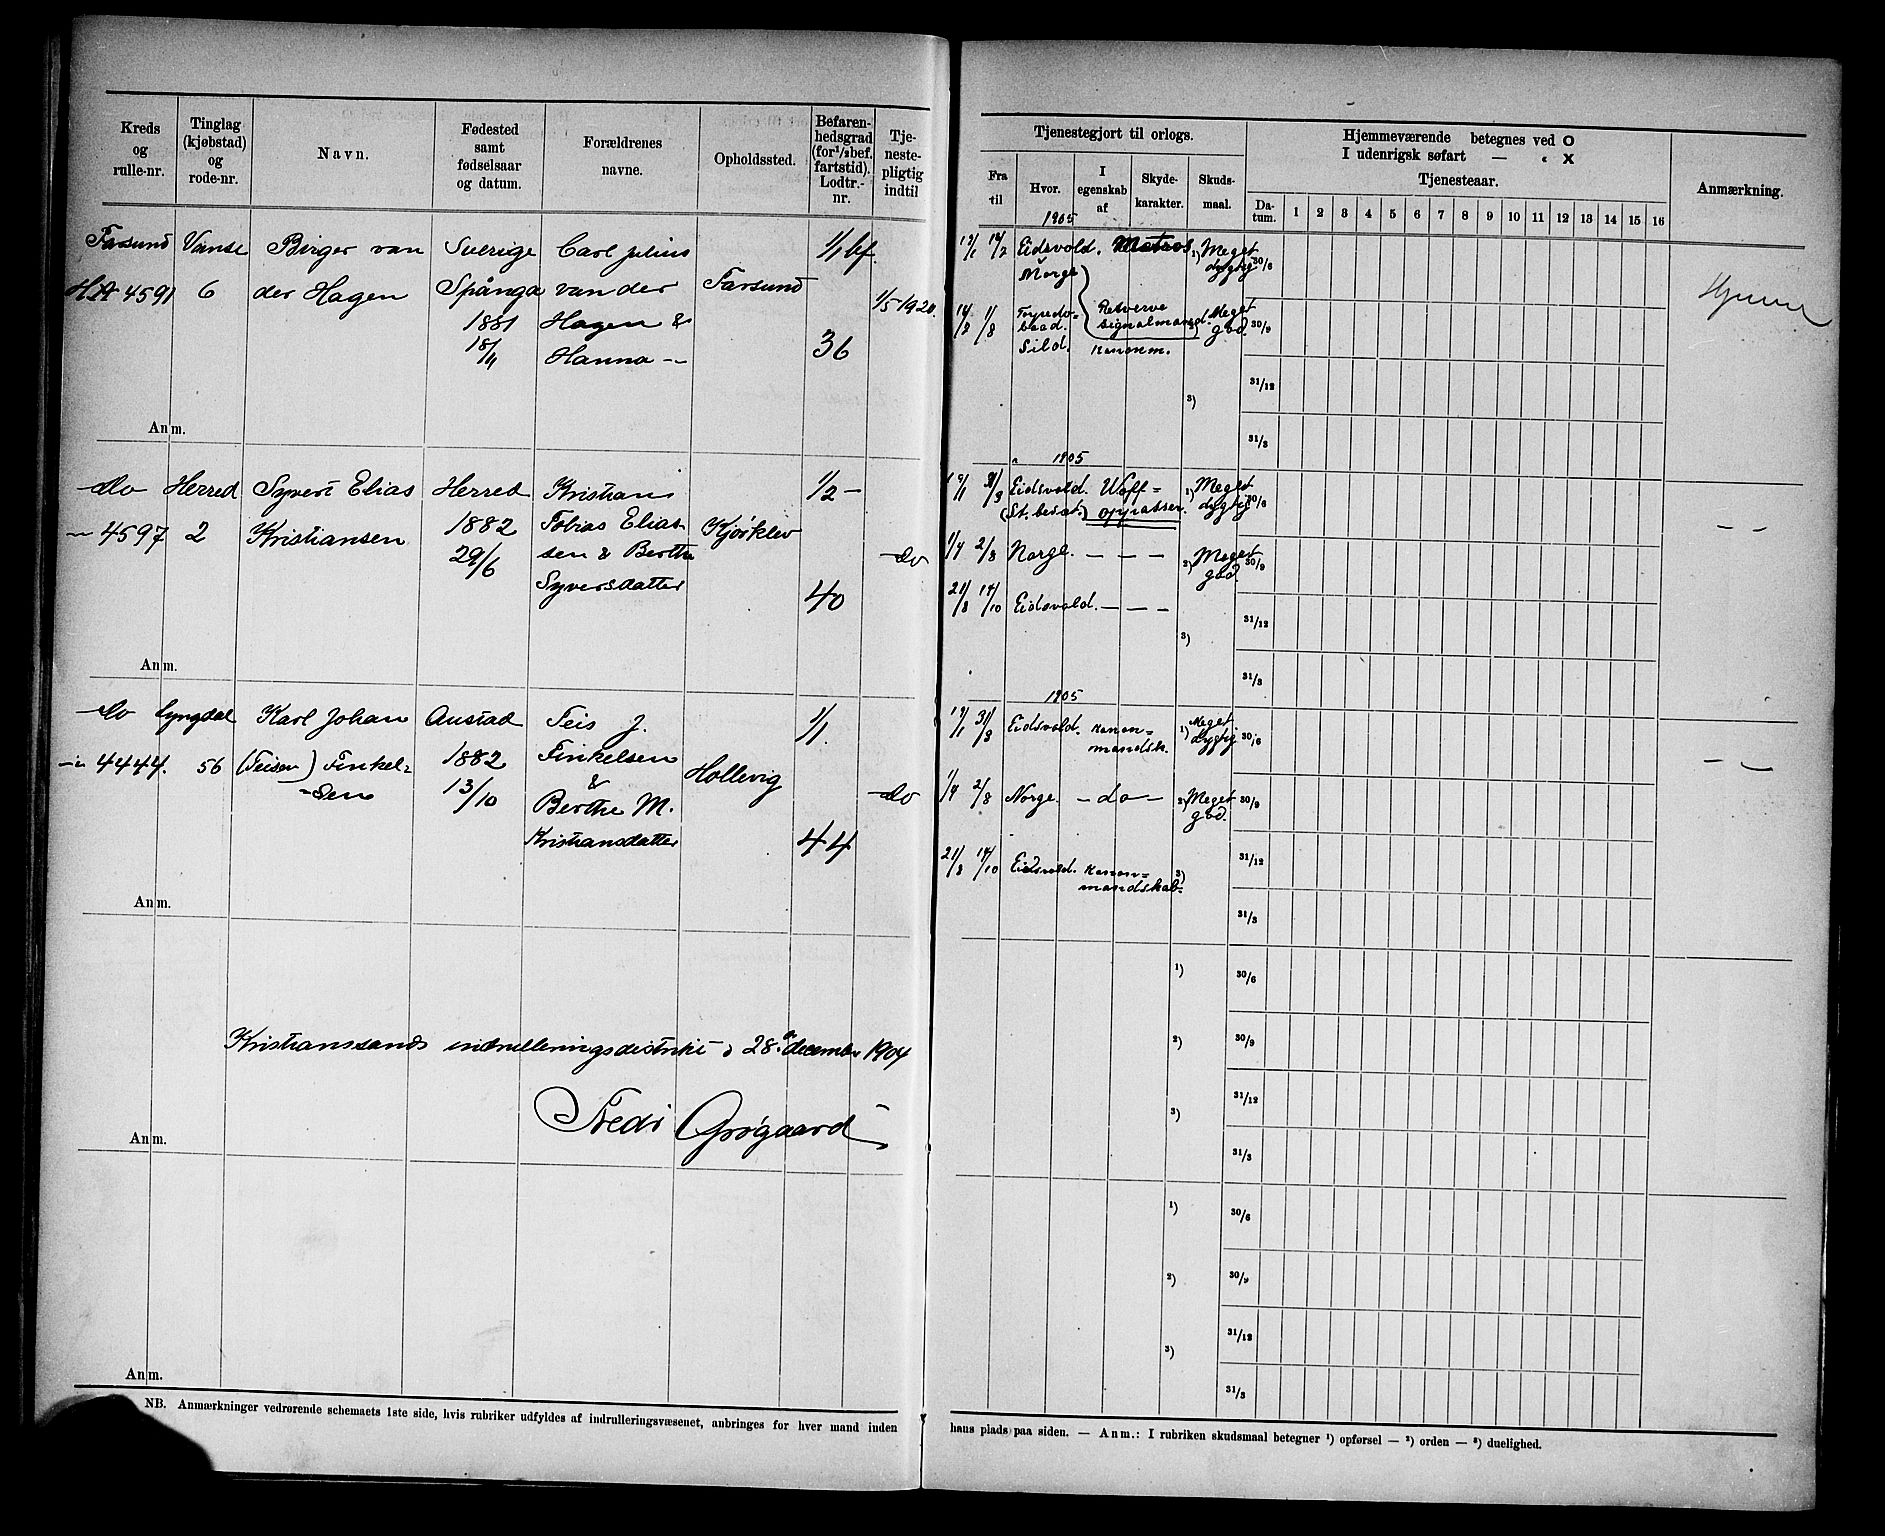 Kreds og rulle-nr.
Tinglag (kjøbstad) og rode-nr.
Navn.
Fødested samt fødselsaar og datum.
Forældrenes navne.
Opholdssted.
Befarenhedsgrad (for 1/2 bef. fartstid). Lodtr.-nr.
Tjenestepligtig indtil
Farsund Vanse Birger van Sverige Carl Julius 1/1 bf.
4591 6 der Hagen Spånga van der Farsund 1/5 1920.
1881 Hagen &
18/11 Hanna -"- 36
Anm.
do Herred Syvert Elias Herred Kristian 1/2 -
-"- 4597 2 Kristiansen 1882 Tobias Elias- Kjørklev
29/6 sen & Berthe do
Syversdatter 40
Anm.
do Lyngdal Karl Johan Austad Teis J. 1/1.
-"- 4444. 56 (Teisen) Finkel- 1882 Finkelsen Hollevig
-sen 13/10 & do
Berthe M.
Kristiansdatter 44
Anm.
Kristianssands indrulleringsdistrikt d 28 december 1904
Fredr Grøgaard
Anm.
Anm.
NB. Anmærkninger vedrørende schemaets 1ste side, hvis rubriker udfyldes af indrulleringsvæsenet, anbringes for hver mand inden
Tjenestegjort til orlogs.
Fra til
Hvor.
I egenskab af
Skydekarakter.
Skudsmaal.
Hjemmeværende betegnes ved O
I udenrigsk søfart — " X
Tjenesteaar.
Datum. 1 2 3 4 5 6 7 8 9 10 11 12 13 14 15 16
Anmærkning.
1905
Eidsvold. Matros 1) Meget dygtig 30/6
Norge
Torpedo- Reserve Meget
baad. signalmand. god. 30/9
Sild. Kanonm.
Hjemme
31/12
3)
31/3
1905
Eidsvold. Voff- 1) Meget
(St. besæt.) oppasser. dygtig 30/6
1/4 2/8 Norge. — — — 2) Meget god. 30/9
21/8 14/10 Eidsvold. — — —
31/12
3)
31/3
1905
31/3 Eidsvold. Kanon- 1) Meget dygtig 30/6
mandsk.
1/4 2/8 Norge. — do — 2) Meget god. 30/9
21/8 14/10 Eidsvold. Kanon- 3) 31/12
mandskab.
31/3
1) 30/6
2) 30/9
31/12
3)
31/3
1) 30/6
2) 30/9
31/12
3)
31/3
hans plads paa siden. — Anm.: I rubriken skudsmaal betegner 1) opførsel — 2) orden — 3) duelighed.